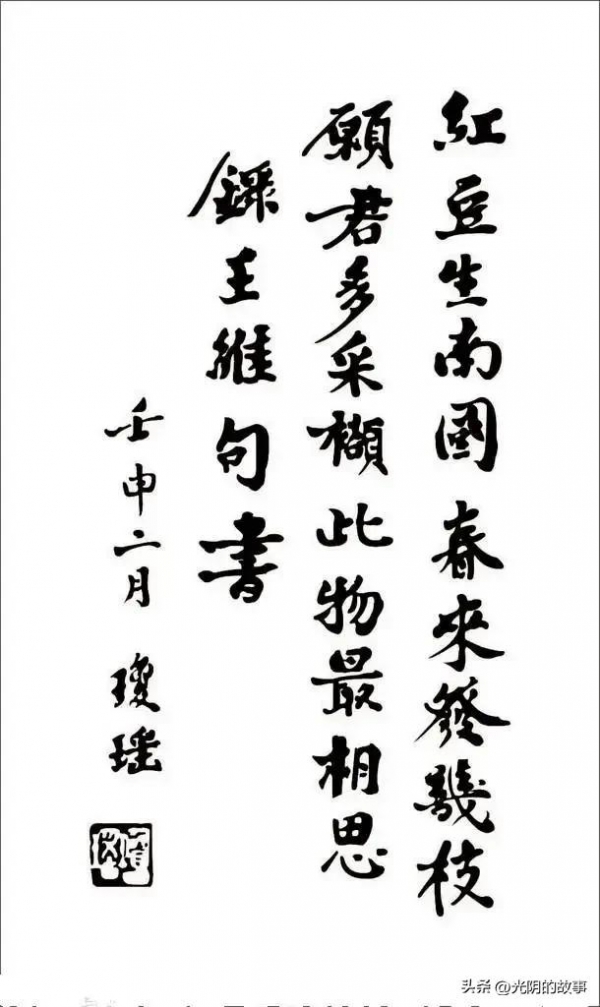 紅豆生南國春來發幾枝
願君多采擷此物最相思
錄王維句書
壬申二月 瓊瑤
头条 @光阴的故事